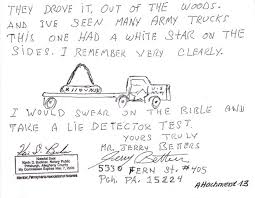 THEY DROVE IT, OUT OF THE WOODS.
AND I'VE SEEN MANY ARMY TRUCKS
THIS ONE HAD A WHITE STAR ON THE
SIDES. I REMEMBER VERY CLEARLY.
I WOULD SWEAR ON THE BIBLE AND
TAKE A LIE DETECTOR TEST.
YOURS TRULY
MR. JERRY BETTERS
Jerry Betters
5330 FERN ST. #405
PGH. PA. 15224
Notarial Seal
Notary Public
Pittsburgh, Allegheny County
My Commission Expires Mar. 7,
Member, Pennsylvania Association of Notaries
Attachment 13